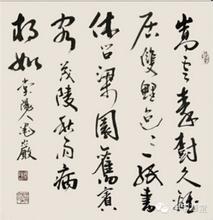 嵩雲秦樹久離
居雙鯉迢迢一紙書
休問梁園舊賓
客茂陵秋雨病
相如